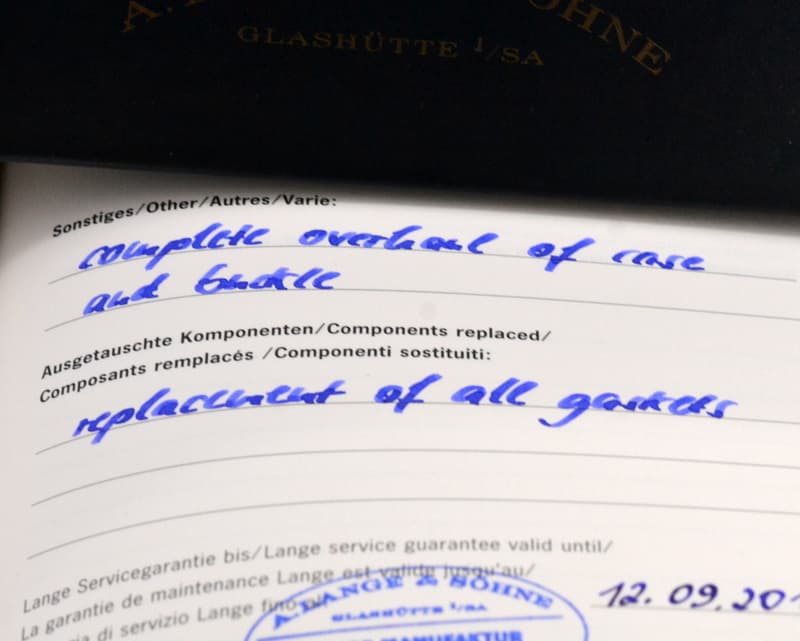 A. SÖHNE
GLASHÜTTE I/SA
Sonstiges/Other/Autres/Varie:
complete overhaul of case
and buckle
Ausgetauschte Komponenten/Components replaced/
Composants remplacés /Componenti sostituiti:
replacement of all gaskets
Lange Servicegarantie bis/Lange service guarantee valid until/
La garantie de maintenance Lange est valide jusqu'au/
di servizio Lange fino al:
12.09.201
A. LANGE & SÖHNE
GLASHÜTTE I/SA
MANUFAKTUR